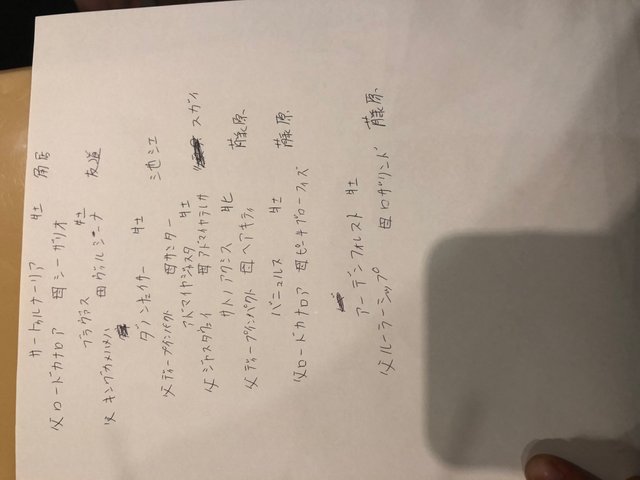 サートゥルナーリア 牡 角居
父ロードカナロア 母シーザリオ
ブラヴァス 牡 友道
父キングカメハメハ 母ヴィルシーナ
ダノンセイザー 牡 池江
父ディープインパクト 母カンター
アドマイヤジャスタ 牡 スガイ
父ジャスタウェイ 母アドマイヤテレサ
サトノアクシス 牝 藤原
父ディープインパクト 母ヘアキティ
バニュルス 牡 藤原
父ロードカナロア 母ピーチブローフィズ
アーデンフォレスト 牡
父ルーラーシップ 母ロザリンド 藤原